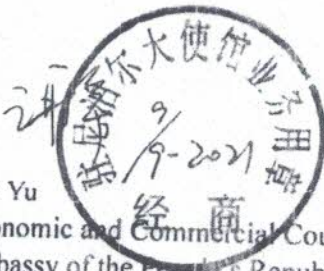 驻尼泊尔大使馆业务用章
9/9-2021
经 商
Yu
onomic and Commercial Cou
bassy of the People's Republ